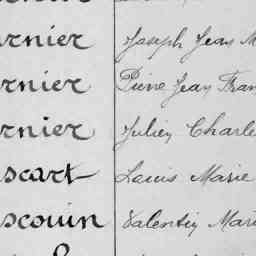 rnier Joseph Jean M
rnier Pierre Jean Fran
rnier Julien Charle
scart Louis Marie
scouin Valentin Mari